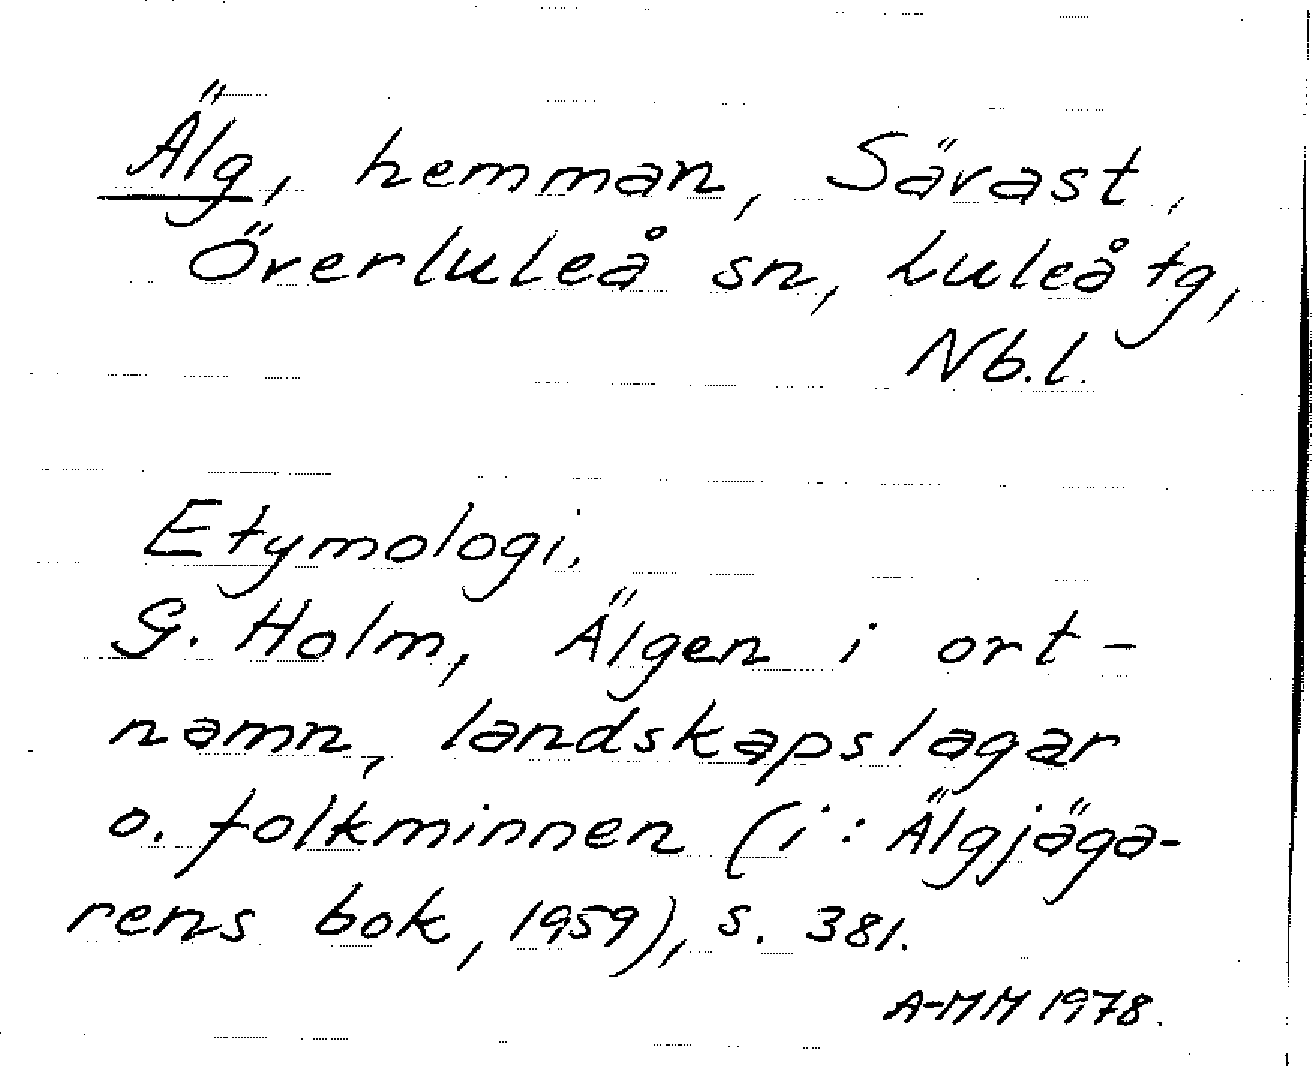 Älg, hemman, Sävast,
Överluleå sn, Luleå tg,
Nb.l.
Etymologi.
G. Holm, Älgen i ort-
namn, landskapslagar
o. folkminnen (i: Älgjäga-
rens bok, 1959), s. 381.
A-MM 1978.